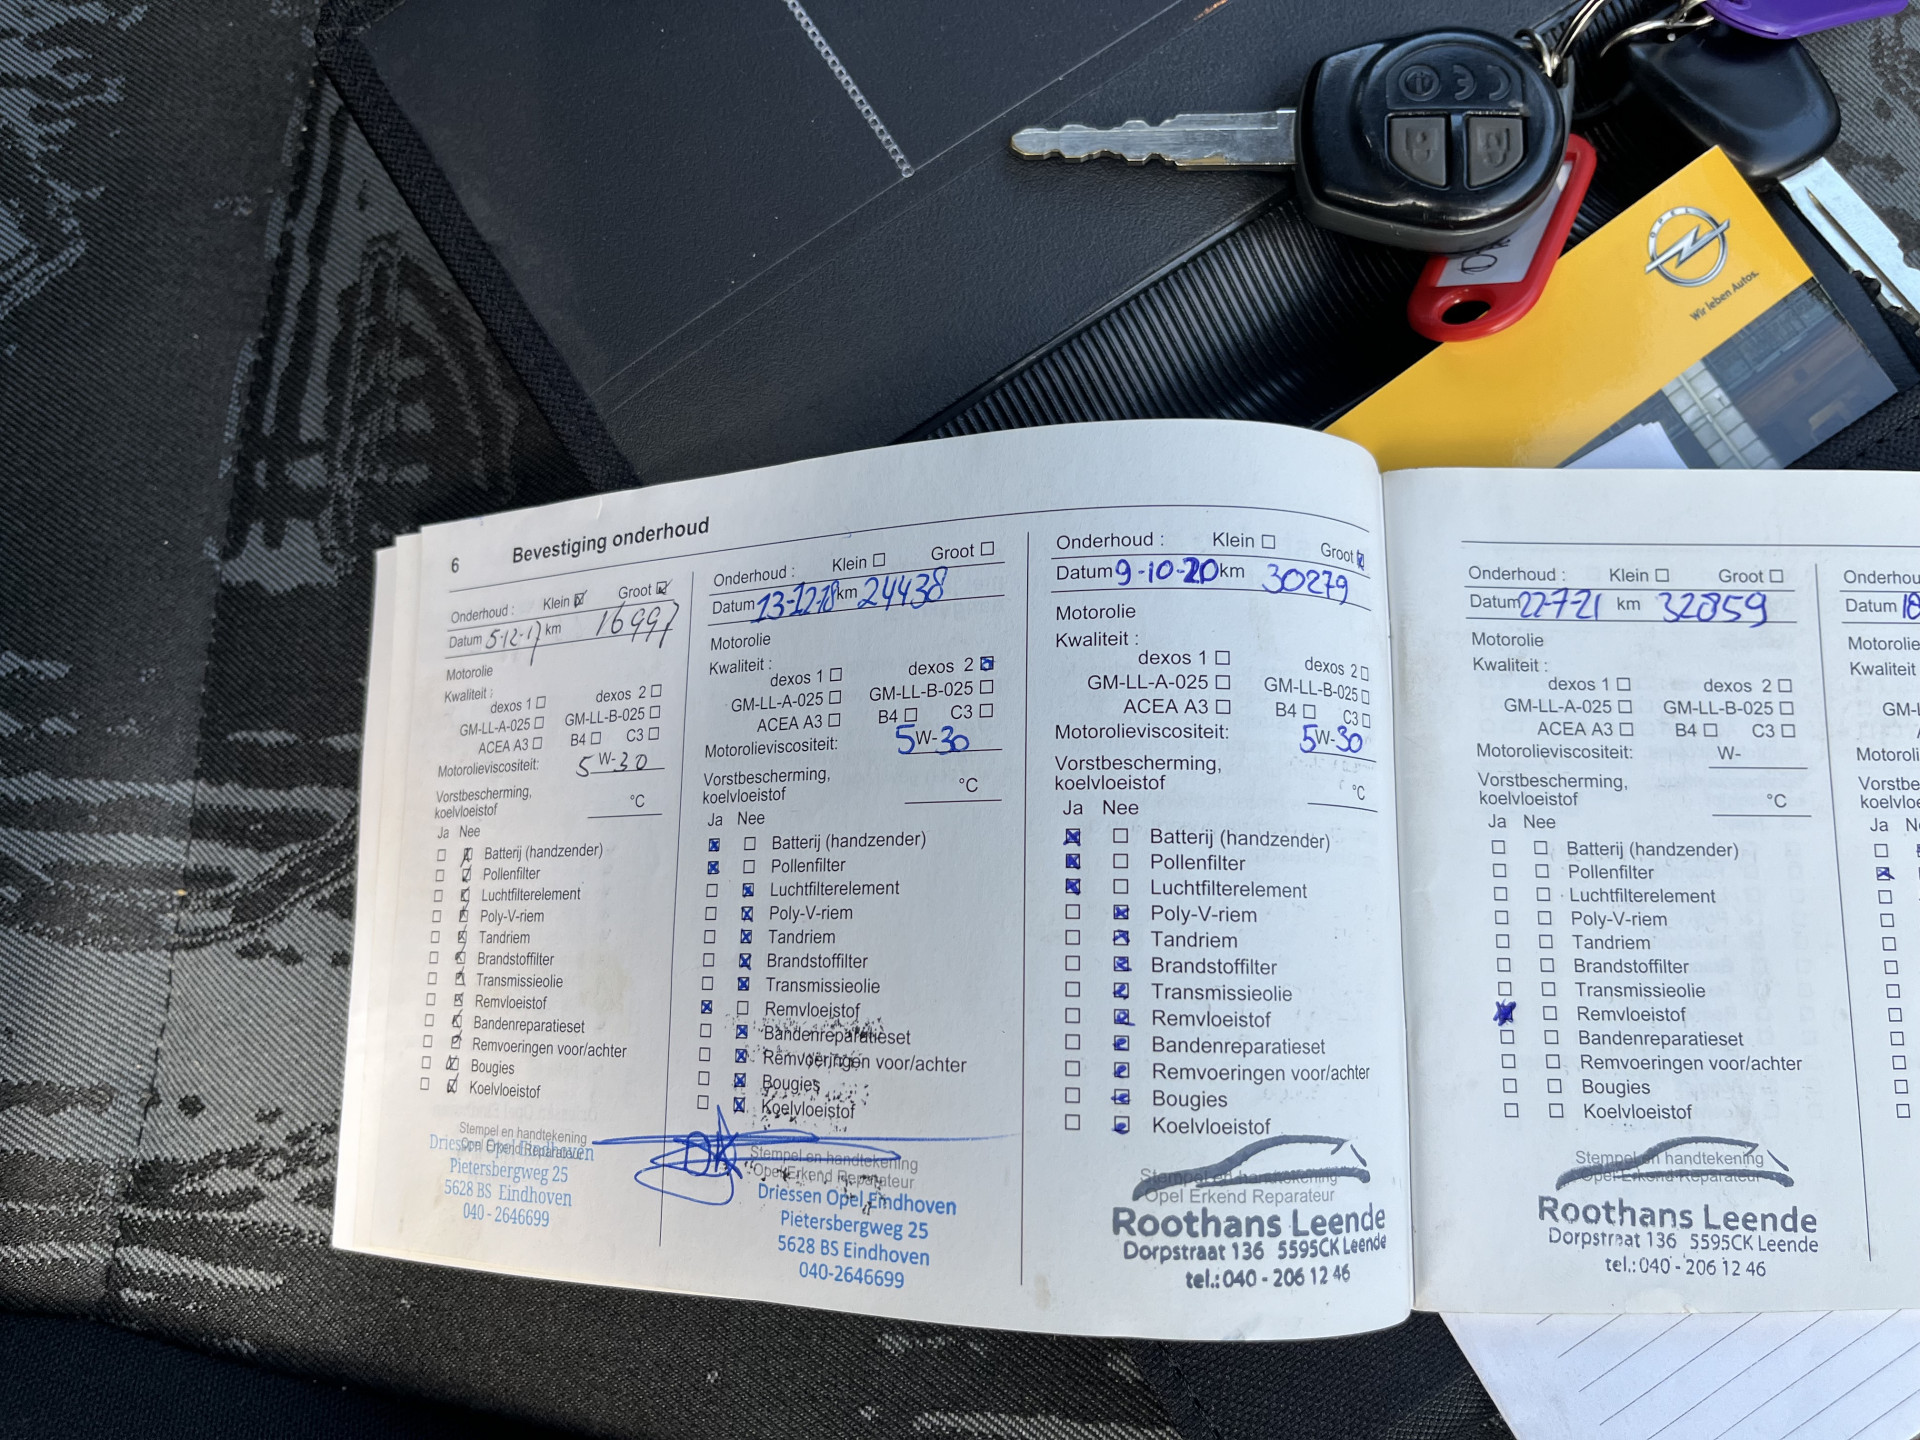 OPEL
Wir leben Autos.
6 Bevestiging onderhoud
Onderhoud : Klein ☑ Groot ☑
Datum 5-12-17 km 16997
Motorolie
Kwaliteit :
dexos 1 ☐ dexos 2 ☐
GM-LL-A-025 ☐ GM-LL-B-025 ☐
ACEA A3 ☐ B4 ☐ C3 ☐
Motorolieviscositeit: 5 W-30
Vorstbescherming,
koelvloeistof °C
Ja Nee
☐ ☑ Batterij (handzender)
☐ ☑ Pollenfilter
☐ ☑ Luchtfilterelement
☐ ☑ Poly-V-riem
☐ ☑ Tandriem
☐ ☑ Brandstoffilter
☐ ☑ Transmissieolie
☐ ☑ Remvloeistof
☐ ☑ Bandenreparatieset
☐ ☑ Remvoeringen voor/achter
☐ ☑ Bougies
☐ ☑ Koelvloeistof
Stempel en handtekening
Opel Erkend Reparateur
Driessen Opel Eindhoven
Pietersbergweg 25
5628 BS Eindhoven
040-2646699
Onderhoud : Klein ☐ Groot ☐
Datum 13-12-18 km 24438
Motorolie
Kwaliteit :
dexos 1 ☐ dexos 2 ☒
GM-LL-A-025 ☐ GM-LL-B-025 ☐
ACEA A3 ☐ B4 ☐ C3 ☐
Motorolieviscositeit: 5W-30
Vorstbescherming,
koelvloeistof °C
Ja Nee
☒ ☐ Batterij (handzender)
☒ ☐ Pollenfilter
☐ ☒ Luchtfilterelement
☐ ☒ Poly-V-riem
☐ ☒ Tandriem
☐ ☒ Brandstoffilter
☐ ☒ Transmissieolie
☒ ☐ Remvloeistof
☐ ☒ Bandenreparatieset
☐ ☒ Remvoeringen voor/achter
☐ ☒ Bougies
☐ ☒ Koelvloeistof
Stempel en handtekening
Opel Erkend Reparateur
Driessen Opel Eindhoven
Pietersbergweg 25
5628 BS Eindhoven
040-2646699
Onderhoud : Klein ☐ Groot ☒
Datum 9-10-20 km 30279
Motorolie
Kwaliteit :
dexos 1 ☐ dexos 2 ☐
GM-LL-A-025 ☐ GM-LL-B-025 ☐
ACEA A3 ☐ B4 ☐ C3 ☐
Motorolieviscositeit: 5W-30
Vorstbescherming,
koelvloeistof °C
Ja Nee
☒ ☐ Batterij (handzender)
☒ ☐ Pollenfilter
☒ ☐ Luchtfilterelement
☐ ☒ Poly-V-riem
☐ ☒ Tandriem
☐ ☒ Brandstoffilter
☐ ☒ Transmissieolie
☐ ☒ Remvloeistof
☐ ☒ Bandenreparatieset
☐ ☒ Remvoeringen voor/achter
☐ ☒ Bougies
☐ ☒ Koelvloeistof
Stempel en handtekening
Opel Erkend Reparateur
Roothans Leende
Dorpstraat 136 5595CK Leende
tel.: 040 - 206 12 46
Onderhoud : Klein ☐ Groot ☐
Datum 22-7-21 km 32859
Motorolie
Kwaliteit :
dexos 1 ☐ dexos 2 ☐
GM-LL-A-025 ☐ GM-LL-B-025 ☐
ACEA A3 ☐ B4 ☐ C3 ☐
Motorolieviscositeit: W-
Vorstbescherming,
koelvloeistof °C
Ja Nee
☐ ☐ Batterij (handzender)
☐ ☐ Pollenfilter
☐ ☐ Luchtfilterelement
☐ ☐ Poly-V-riem
☐ ☐ Tandriem
☐ ☐ Brandstoffilter
☐ ☐ Transmissieolie
☒ ☐ Remvloeistof
☐ ☐ Bandenreparatieset
☐ ☐ Remvoeringen voor/achter
☐ ☐ Bougies
☐ ☐ Koelvloeistof
Stempel en handtekening
Opel Erkend Reparateur
Roothans Leende
Dorpstraat 136 5595CK Leende
tel.: 040 - 206 12 46
Datum 18
Kwaliteit
Ja